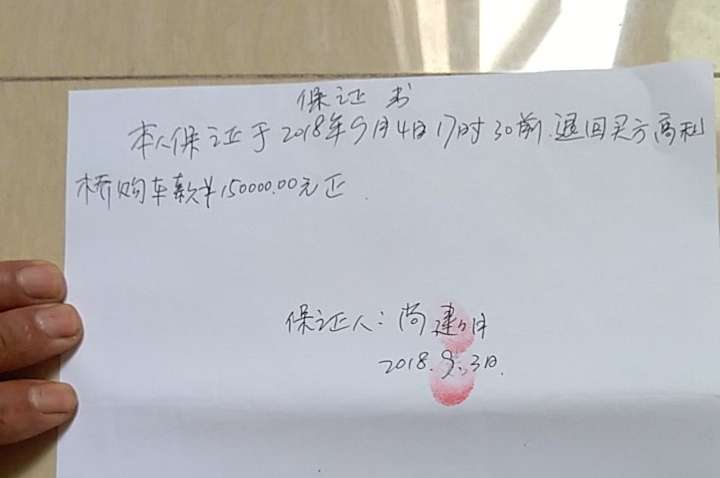 保证书
本人保证于2018年9月4日17时30前.退回买方高利
桥购车款¥150000.00元正.
保证人:尚建明
2018.9.3日.